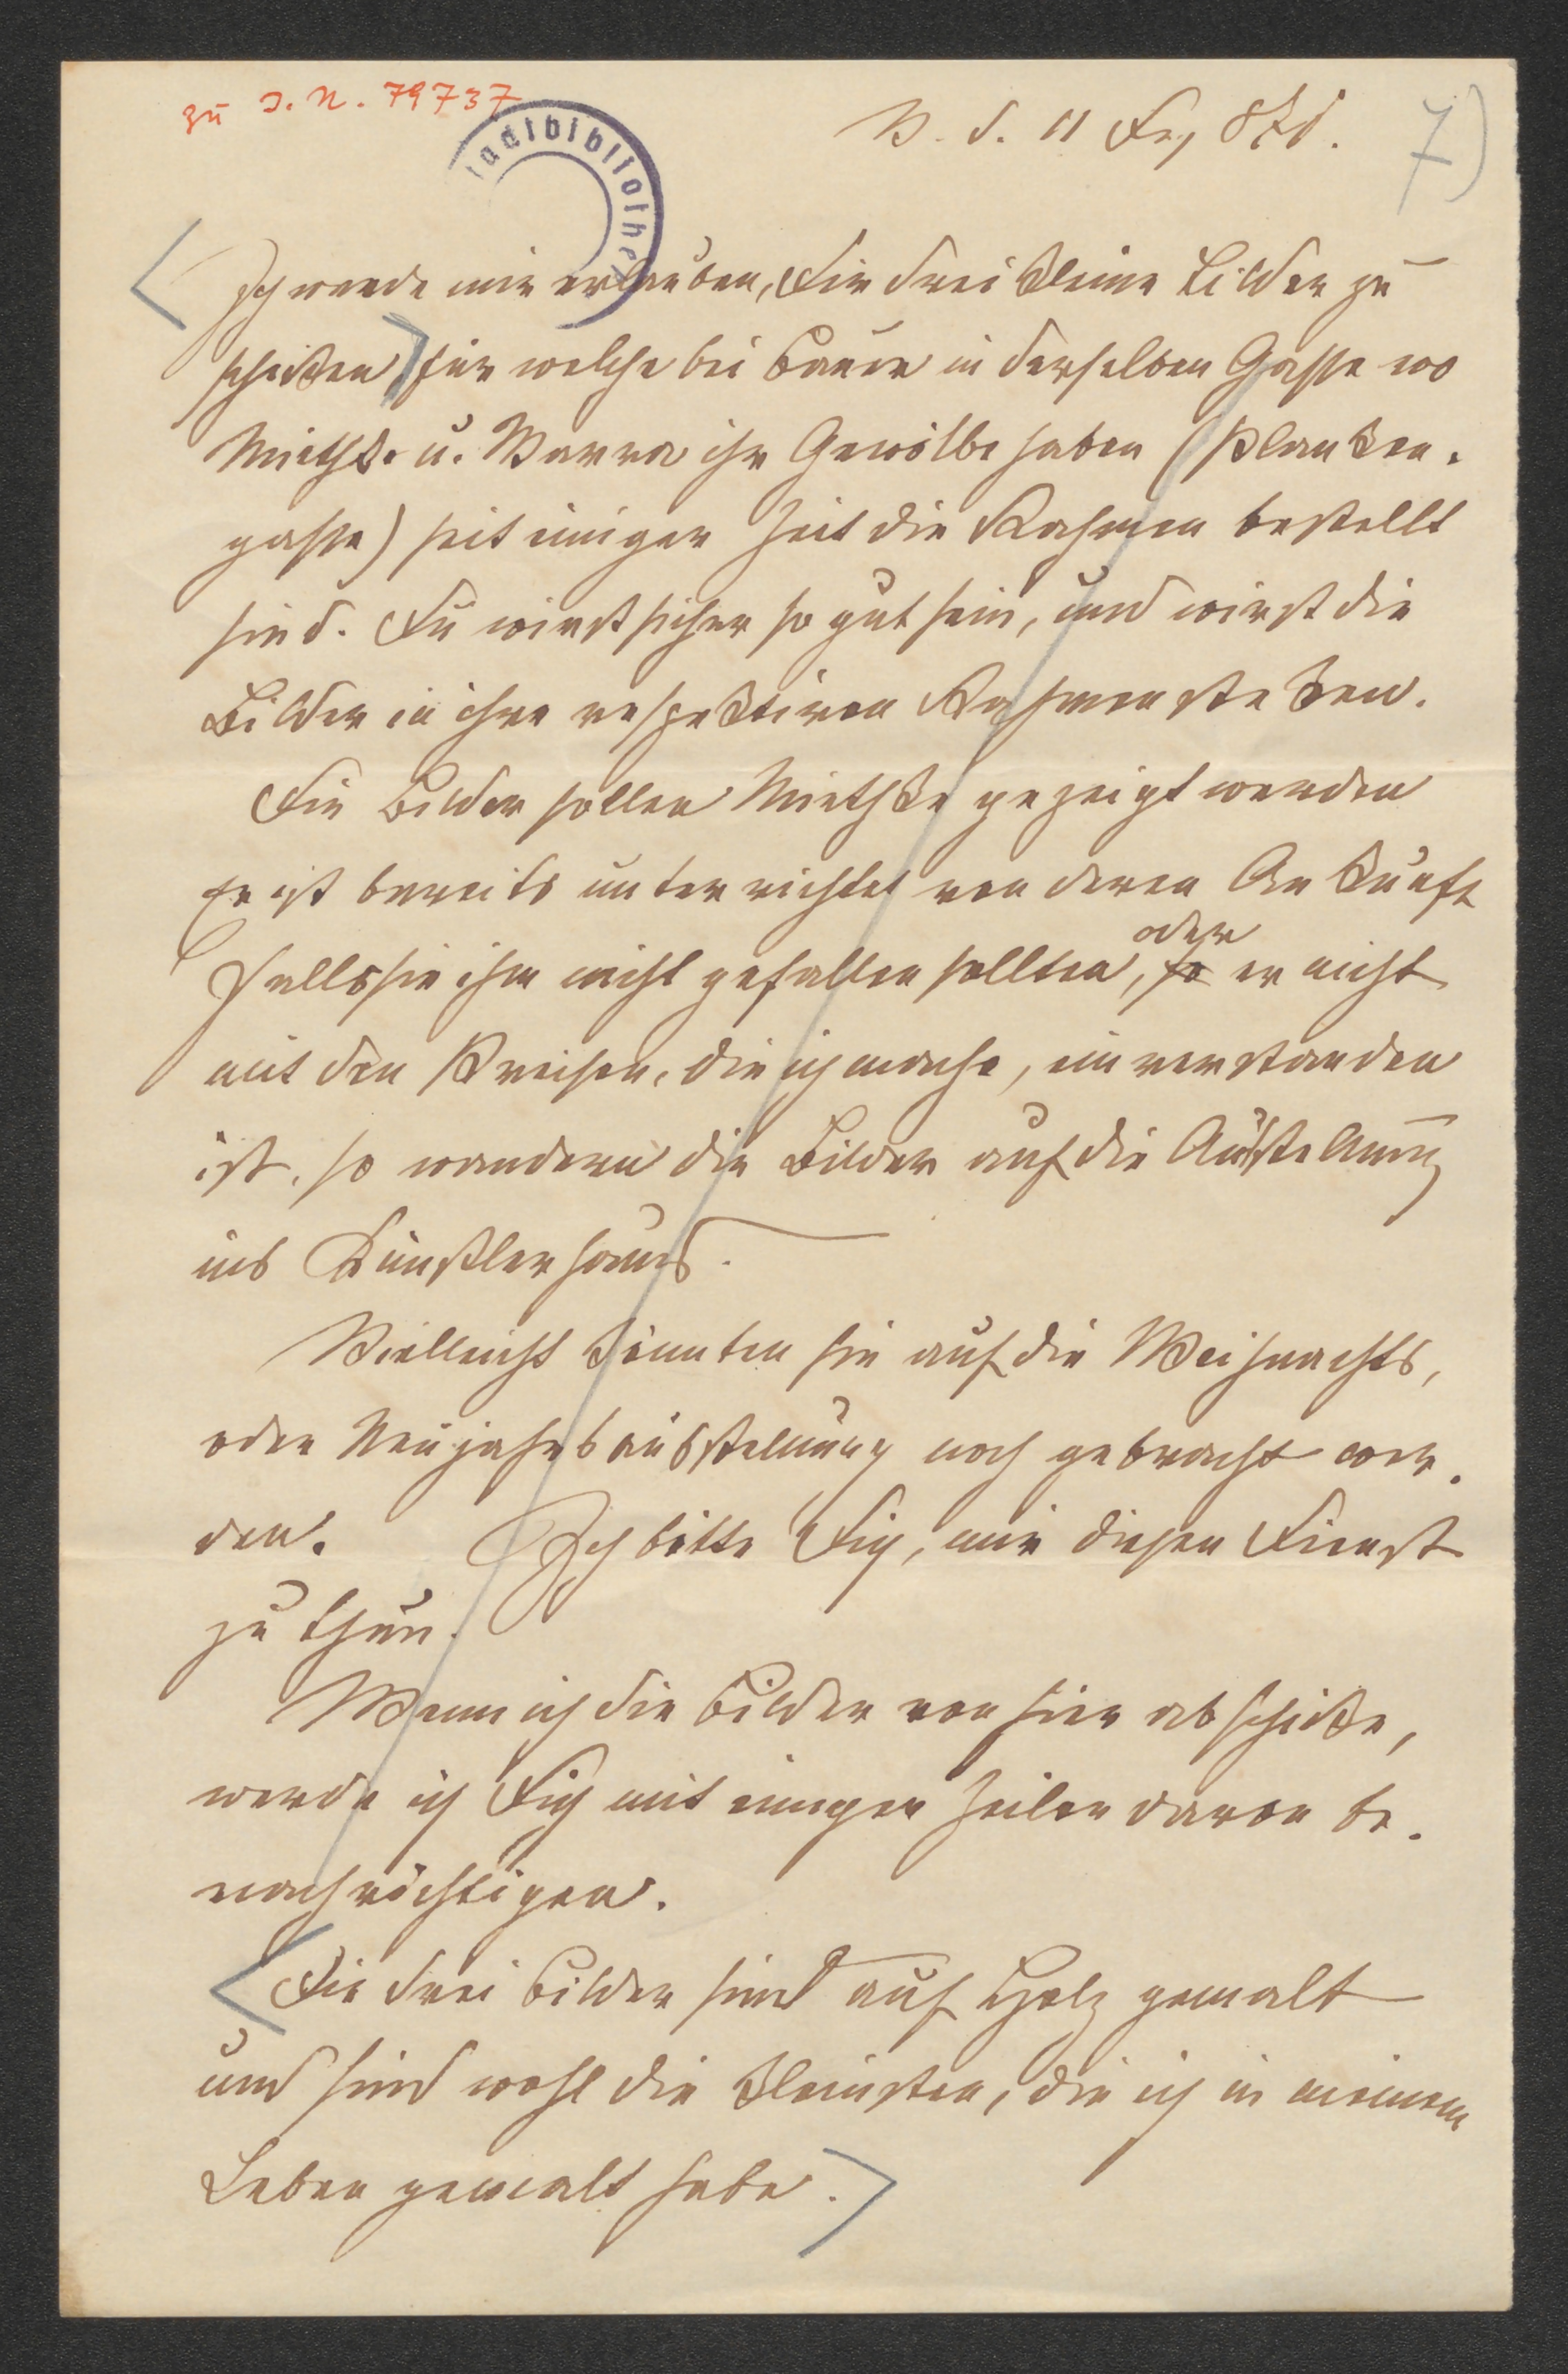 zu I. N. 79737
7)
adtbibliothek
Ich werde mir erlauben, Dir drei kleine Bilder zu
schicken, für welche bei Bauer in derselben Gasse wo
Miethke u. Wawra ihr Gewölbe haben (Planken-
gasse) seit einiger Zeit die Rahmen bestellt
sind. Du wirst sicher so gut sein, und wirst die
Bilder in ihre respektiven Rahmen stecken.
Die Bilder sollen Miethke gezeigt werden
Er ist bereits unterrichtet von deren Ankunft
Falls sie ihm nicht gefallen sollten, so oder er nicht
mit den Preisen, die ich mache, einverstanden
ist, so wandern die Bilder auf die Ausstellung
ins Künstlerhaus.
Vielleicht könnten sie auf die Weihnachts,
oder Neujahrsausstellung noch gebracht wer-
den. Ich bitte Dich, mir diesen Dienst
zu thun.
Wenn ich die Bilder von hier abschicke,
werde ich Dich mit einigen Zeilen davon be-
nachrichtigen.
Die drei Bilder sind auf Holz gemalt
und sind wohl die kleinsten, die ich in meinem
Leben gemalt habe.